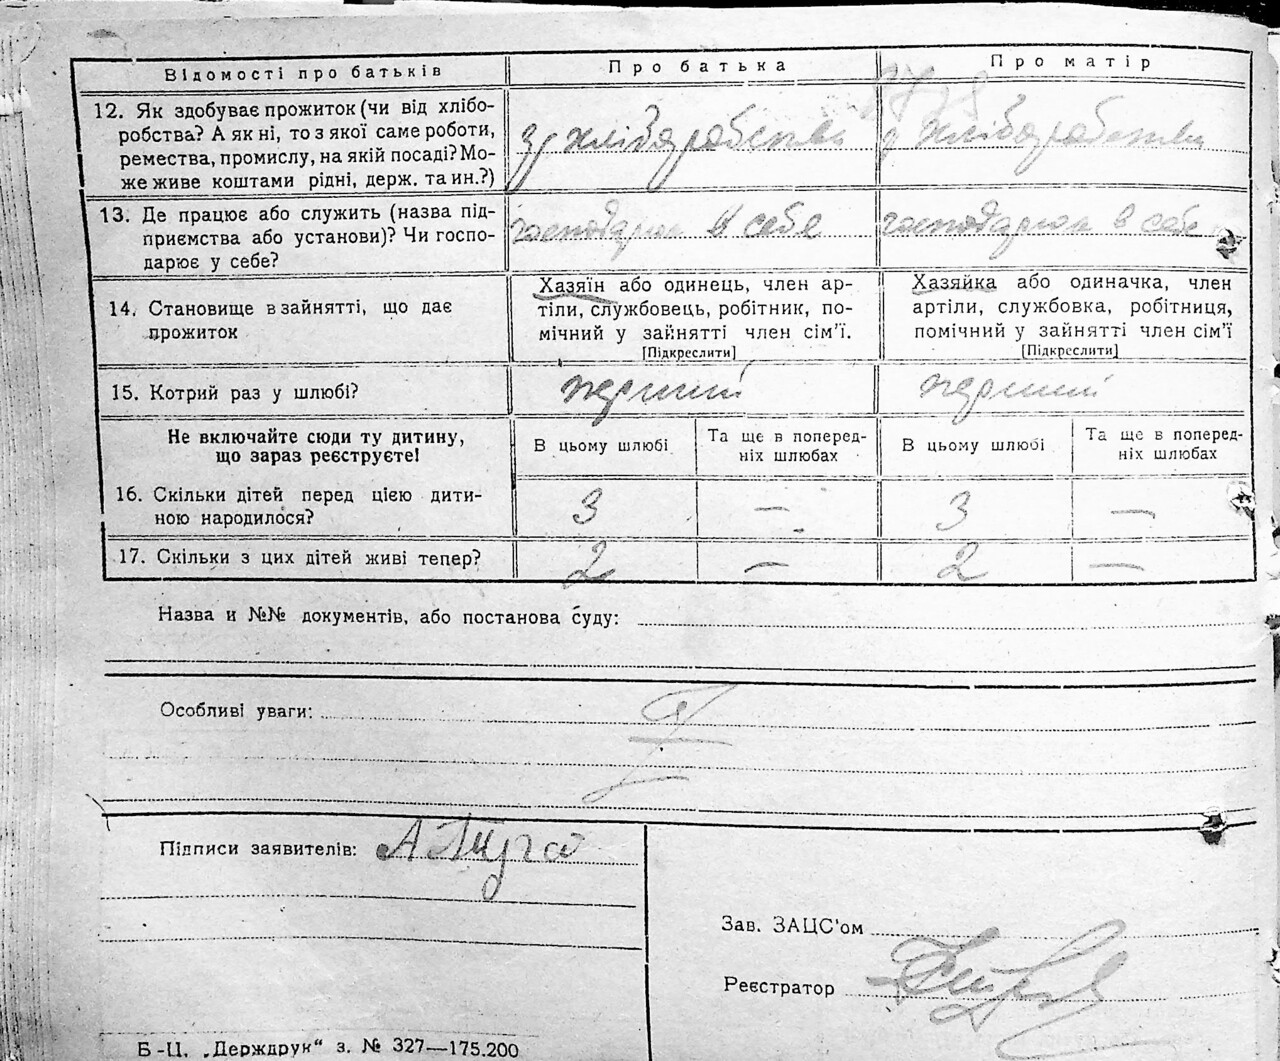 Відомості про батьків
Про батька
Про матір
12. Як здобуває прожиток (чи від хлібо-
робства? А як ні, то з якої саме роботи,
ремества, промислу, на якій посаді? Мо-
же живе коштами рідні, держ. та ин.?)
з хліборобства
з хліборобства
13. Де працює або служить (назва під-
приємства або установи)? Чи госпо-
дарює у себе?
господарює в себе
господарює в себе
14. Становище в зайнятті, що дає
прожиток
Хазяїн або одинець, член ар-
тіли, службовець, робітник, по-
мічний у зайнятті член сім'ї.
[Підкреслити]
Хазяйка або одиначка, член
артіли, службовка, робітниця,
помічний у зайнятті член сім'ї
[Підкреслити]
15. Котрий раз у шлюбі?
перший
перший
Не включайте сюди ту дитину,
що зараз реєструєте!
В цьому шлюбі
Та ще в поперед-
ніх шлюбах
В цьому шлюбі
Та ще в поперед-
ніх шлюбах
16. Скільки дітей перед цією дити-
ною народилося?
3
—
3
—
17. Скільки з цих дітей живі тепер?
2
—
2
—
Назва и №№ документів, або постанова суду:
Особливі уваги:
Підписи заявителів:
Зав. ЗАЦС'ом
Реєстратор
Б-Ц. „Держдрук“ з. № 327—175.200